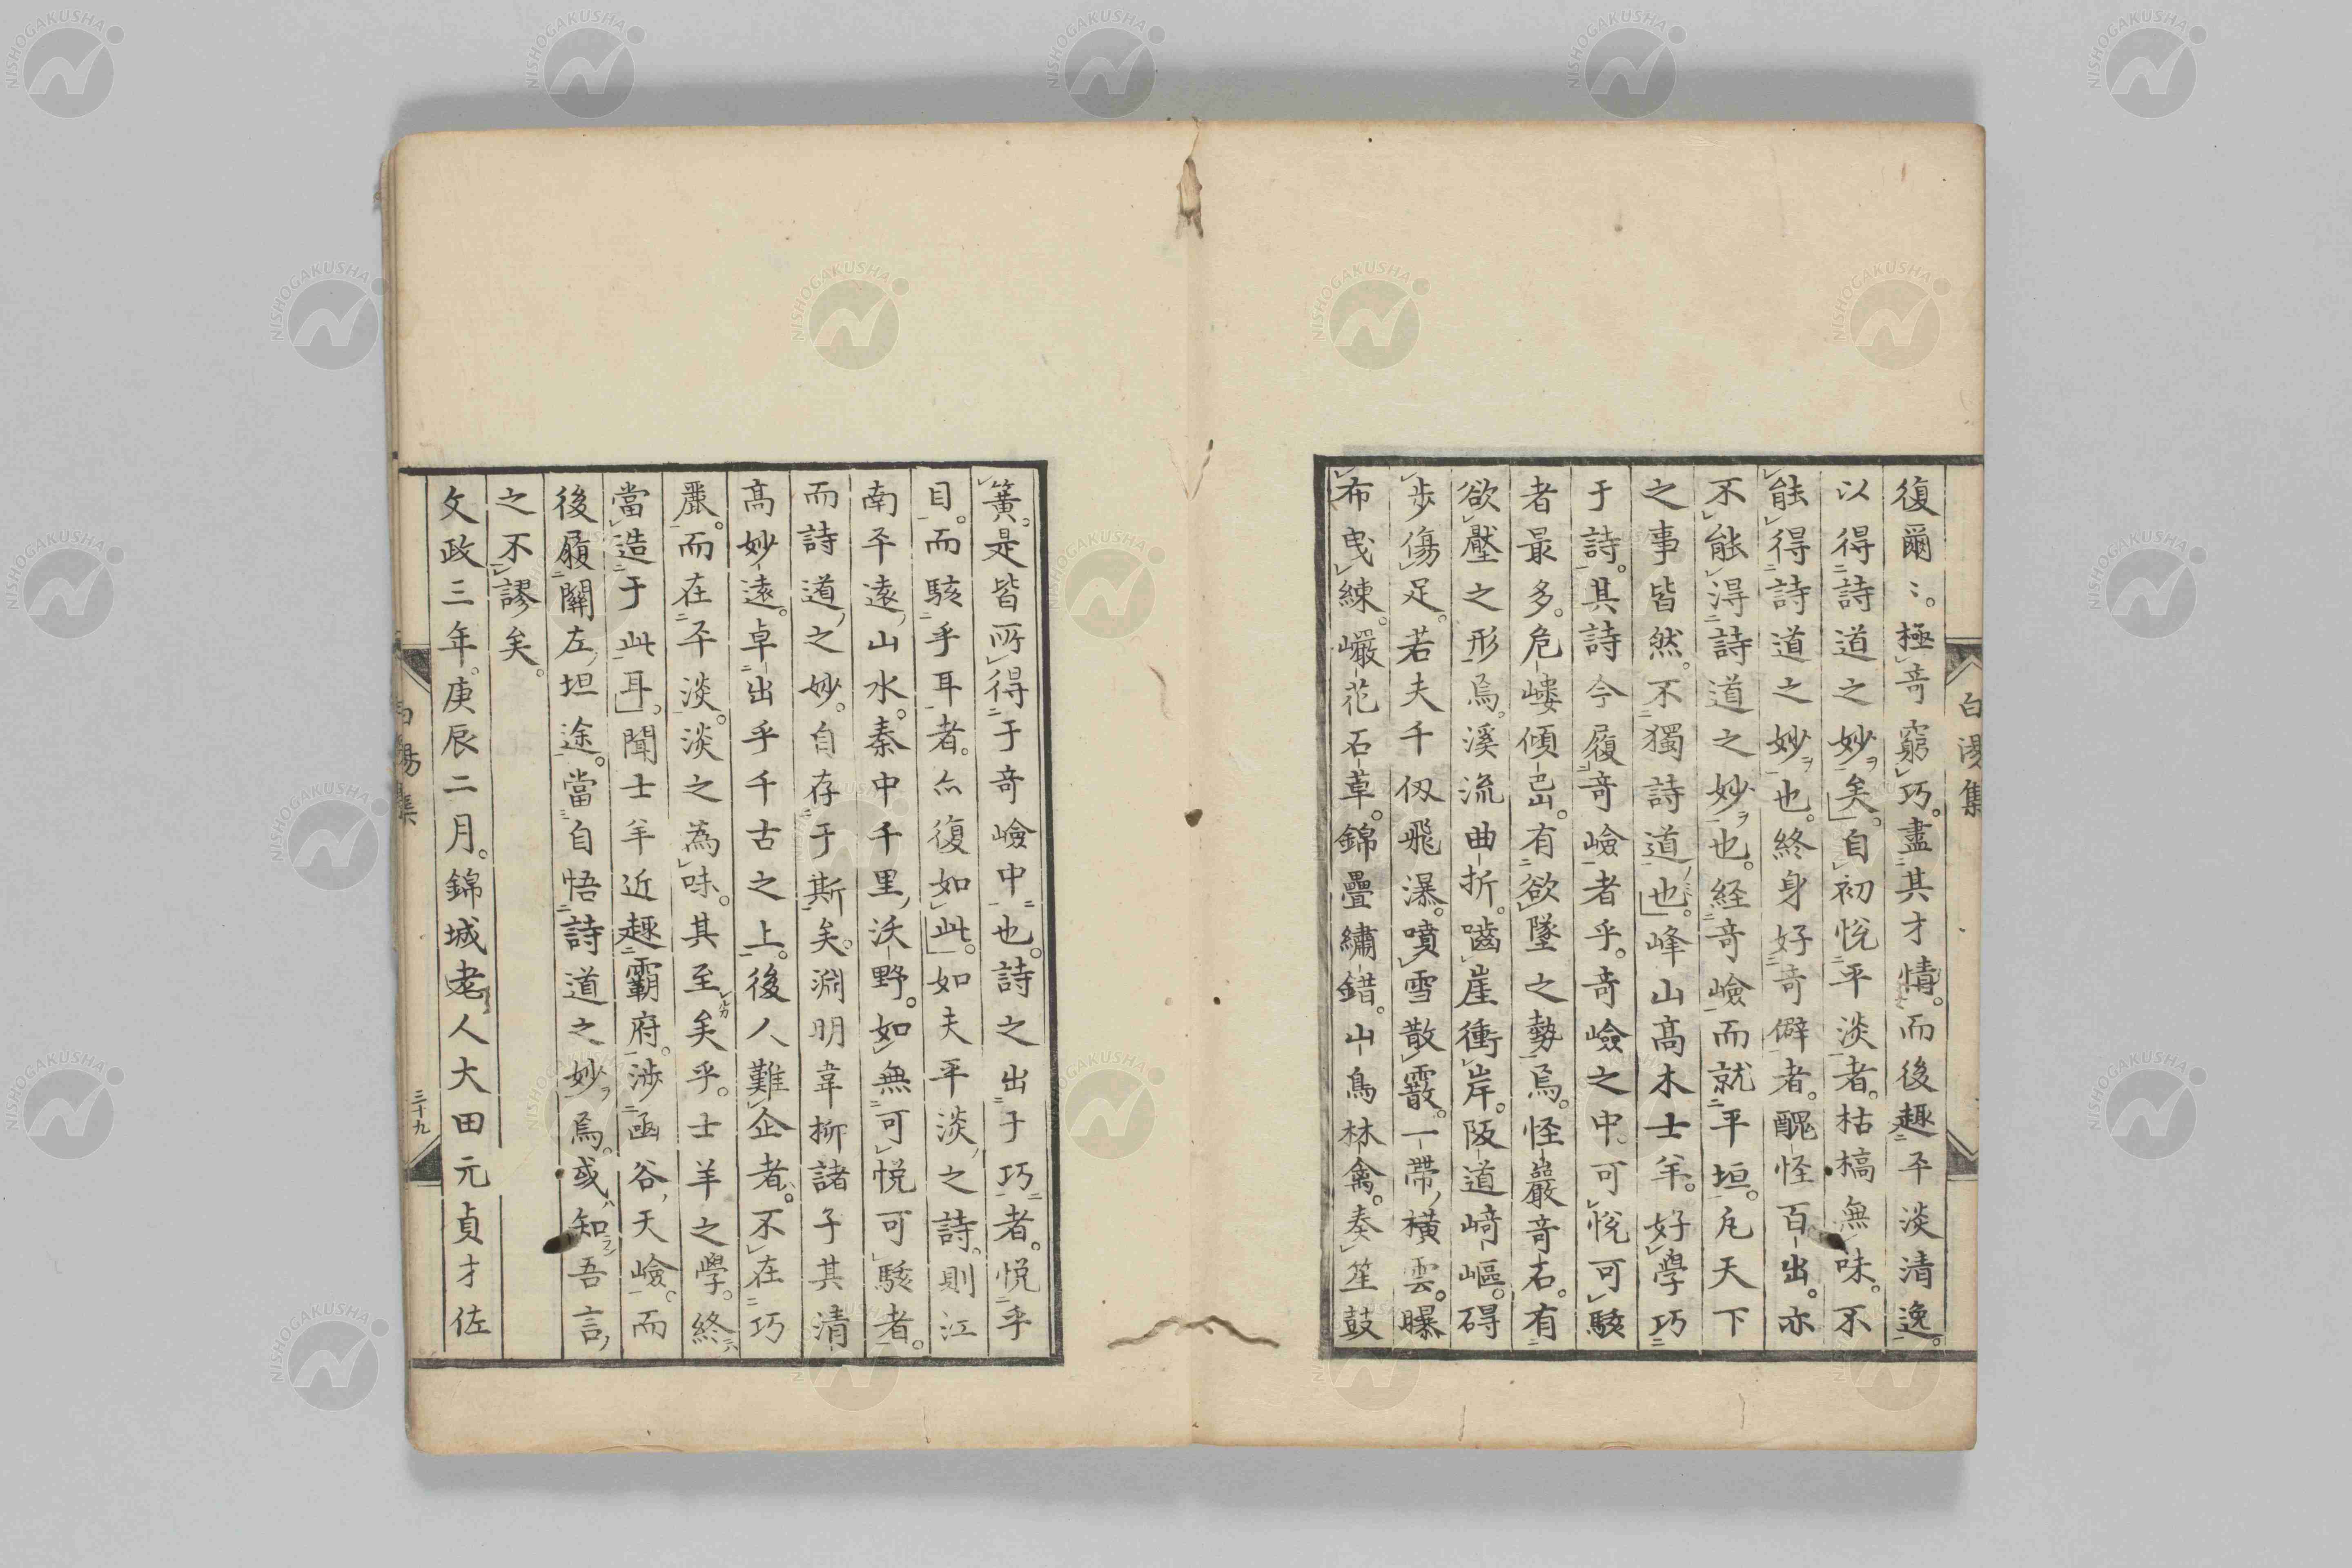 復爾〻。極奇窮巧。盡其才情。而後趣平淡清逸。
以得詩道之妙ヲ矣。自初悦平淡者。枯槁無味。不
能得詩道之妙ヲ也。終身好奇僻者。醜怪百出。亦
不能得詩道之妙ヲ也。経奇嶮而就平垣。凢天下
之事皆然。不獨詩道也。峰山髙木士羊。好學巧
于詩。其詩今履奇嶮者乎。奇嶮之中。可悦可駭
者最多。危嶁傾㠱。有欲墜之勢焉。怪巖奇石。有
欲壓之形焉。溪流曲折。嚙崖衝岸。阪道﨑嶇。碍
歩傷足。若夫千仭飛瀑。噴雪散霰。一帶横雲。曝
布曳練。巗花石草。錦疊繡錯。山鳥林禽。奏笙鼓
簧。是皆所得于奇嶮中也。詩之出于巧者。悦乎
目。而駭乎耳者。亦復如此。如夫平淡之詩。則江
南平遠山水。秦中千里沃野。如無可悦可駭者。
而詩道之妙。自存于斯矣。淵明韋柳諸子其清
髙妙遠。卓出乎千古之上。後人難企者。不在巧
麗。而在平淡。淡之為味。其至矣乎。士羊之學。終
當造于此耳。聞士羊近趣霸府。渉函谷天嶮。而
後履關左坦途。當自悟詩道之妙ヲ焉。或知吾言
之不謬矣。
文政三年。庚辰二月。錦城老人大田元貞才佐
白湯集
三十九
NISHOGAKUSHA